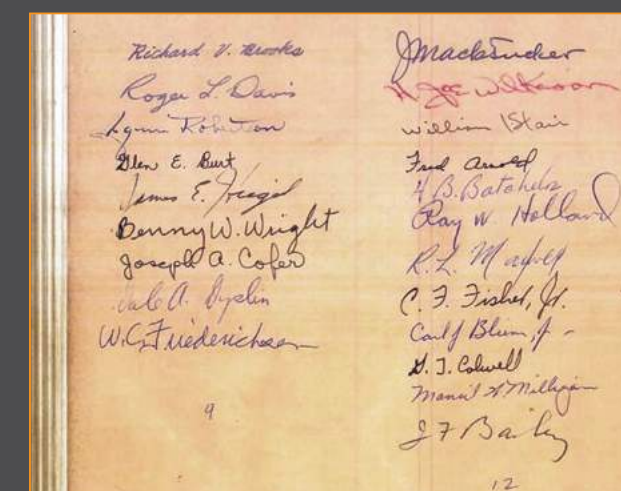 Richard V. Brooks
Roger L. Davis
Lynn Robertson
Glen E. Burt
James E.
Benny W. Wright
Joseph A. Cofer
A.
W.C. Friederichsen
9
J Mack Tucker
H Joe Wilkerson
William Stair
Fred Arnold
H B. Batchelor
Ray W Holland
R. L.
C. F. Fisher, Jr.
Carl J Blum, Jr
G. T. Colwell
Milligan
J F Bailey
12